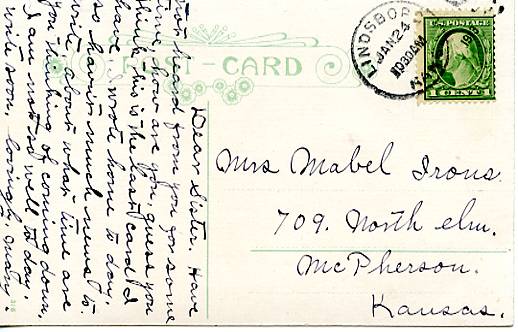 POST-CARD
LINDSBOR
JAN 24
1030AM
KANS
U.S. POSTAGE
1 CENT 1
Dear Sister. Have
not heard from you for some
time, how are you, guess you
think this is the last card I
have. I wrote home to day.
so havent much news to
write. about what time are
you thinking of coming down,
I am not so well to day.
write soon. lovingly,
Mrs Mabel Irons.
709. North elm.
McPherson.
Kansas.